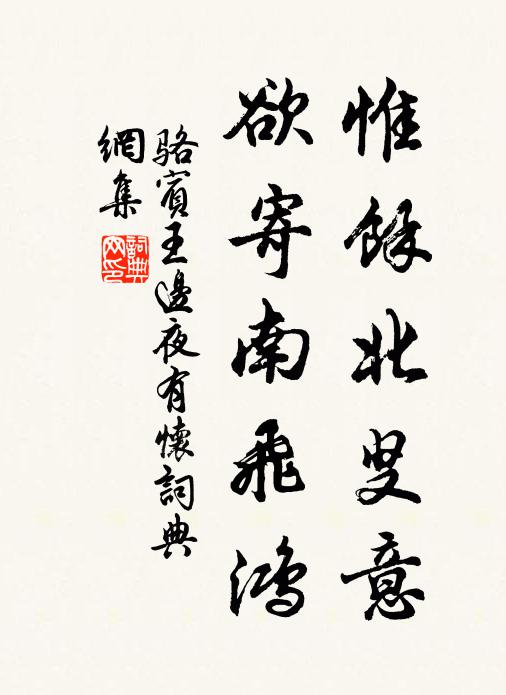 惟餘北叟意
欲寄南飛鴻
駱賓王邊夜有懷詞典
網集
詞典网印